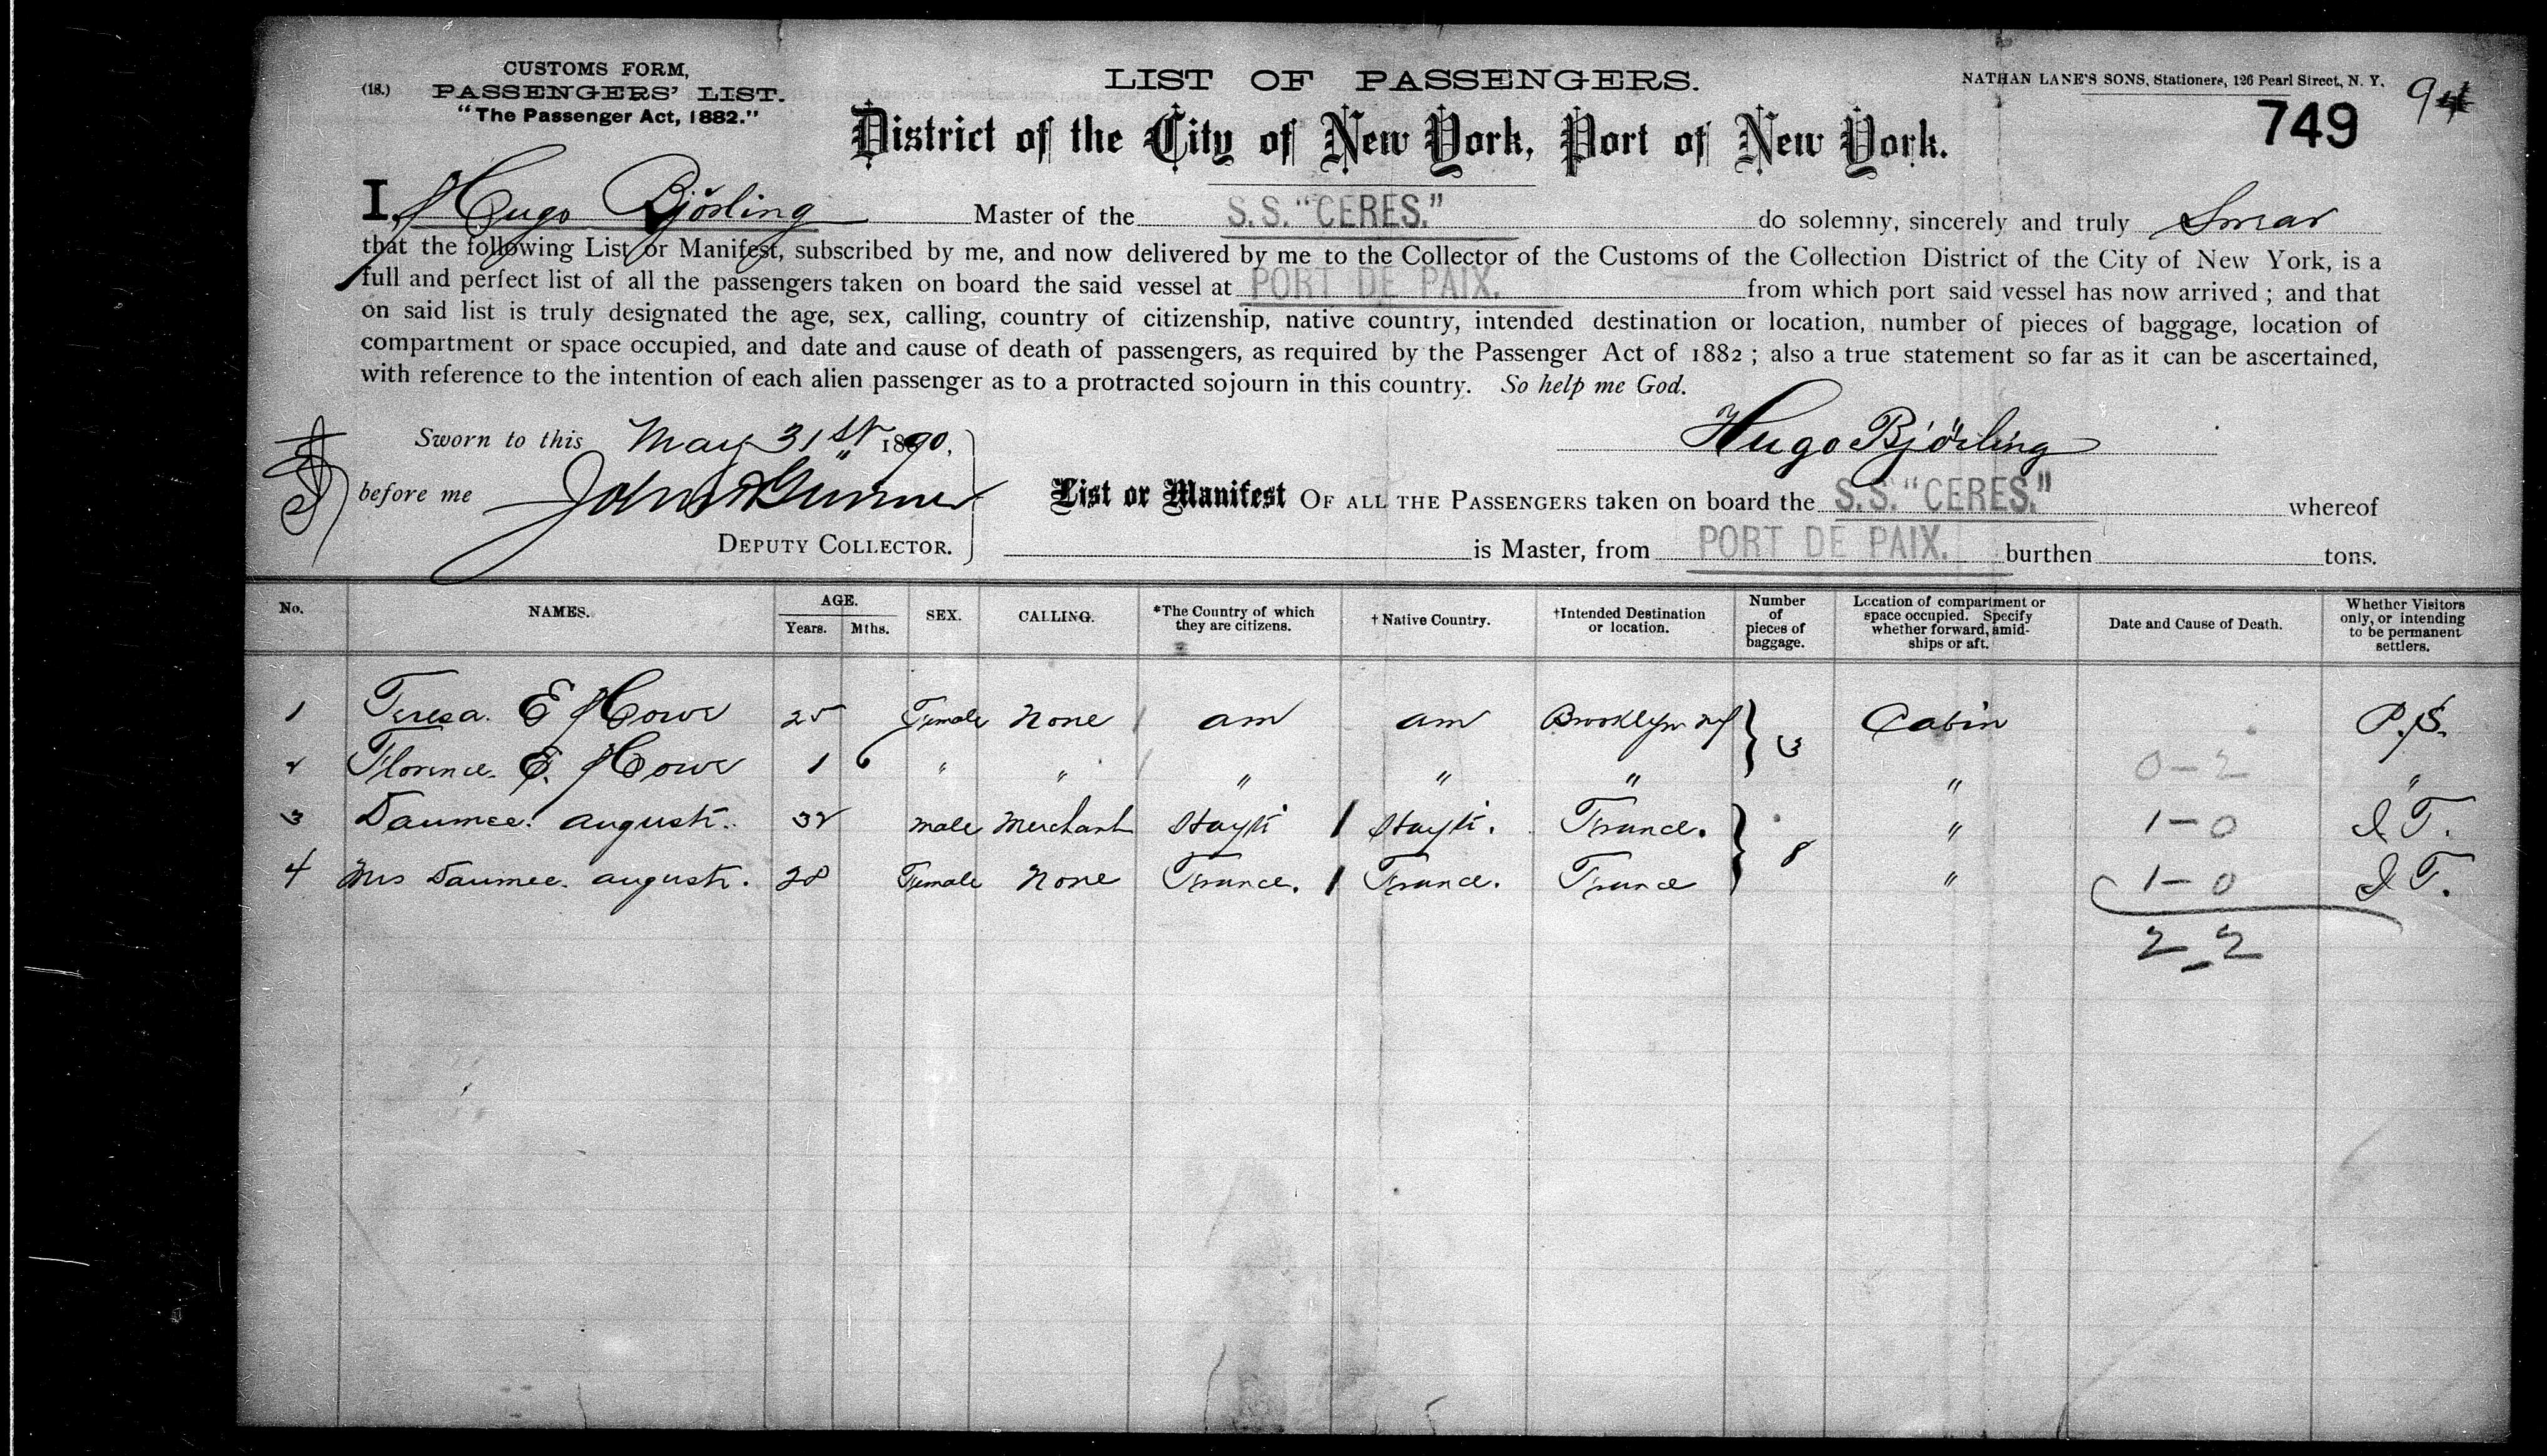 CUSTOMS FORM,
(18.) PASSENGERS' LIST.
"The Passenger Act, 1882."
LIST OF PASSENGERS.
NATHAN LANE'S SONS, Stationers, 126 Pearl Street, N. Y.
749
District of the City of New York, Port of New York.
I, Hugo Björling Master of the S.S. "CERES." do solemny, sincerely and truly Swear
that the following List or Manifest, subscribed by me, and now delivered by me to the Collector of the Customs of the Collection District of the City of New York, is a
full and perfect list of all the passengers taken on board the said vessel at PORT DE PAIX. from which port said vessel has now arrived; and that
on said list is truly designated the age, sex, calling, country of citizenship, native country, intended destination or location, number of pieces of baggage, location of
compartment or space occupied, and date and cause of death of passengers, as required by the Passenger Act of 1882; also a true statement so far as it can be ascertained,
with reference to the intention of each alien passenger as to a protracted sojourn in this country. So help me God.
Sworn to this May 31st 1890,
Hugo Björling
before me John
List or Manifest OF ALL THE PASSENGERS taken on board the S.S. "CERES." whereof
DEPUTY COLLECTOR.
is Master, from PORT DE PAIX. burthen tons.
No. NAMES. AGE. Years. Mths. SEX. CALLING. *The Country of which they are citizens. †Native Country. †Intended Destination or location. Number of pieces of baggage. Location of compartment or space occupied. Specify whether forward, amid-ships or aft. Date and Cause of Death. Whether Visitors only, or intending to be permanent settlers.
1 Teresa. E Howe 25 Female None am am Brooklyn NY 3 Cabin P.S.
2 Florence. E. Howe 1 6 " " " " " " 0-2 "
3 Daumec. august. 32 male Merchant Hayti Hayti. France. 8 " 1-0 I T.
4 Mrs Daumec. august. 28 Female None France. France. France " 1-0 I T.
2-2